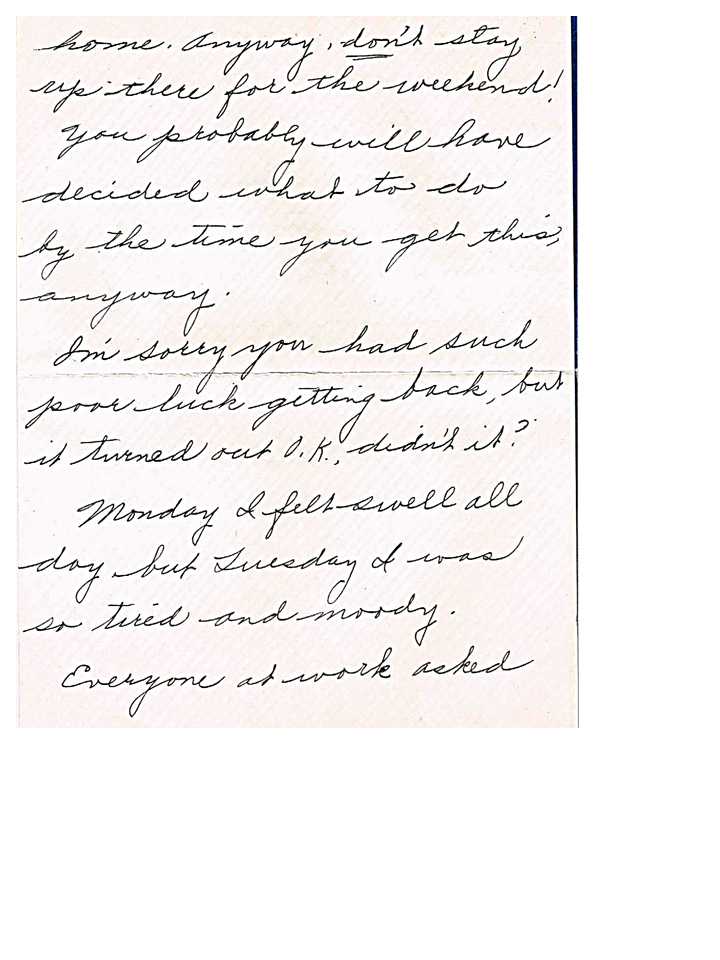 home. Anyway, don't stay
up there for the weekend!
You probably will have
decided what to do
by the time you get this,
anyway.
I'm sorry you had such
poor luck getting back, but
it turned out O.K., didn't it?
Monday I felt swell all
day but Tuesday I was
so tired and moody.
Everyone at work asked